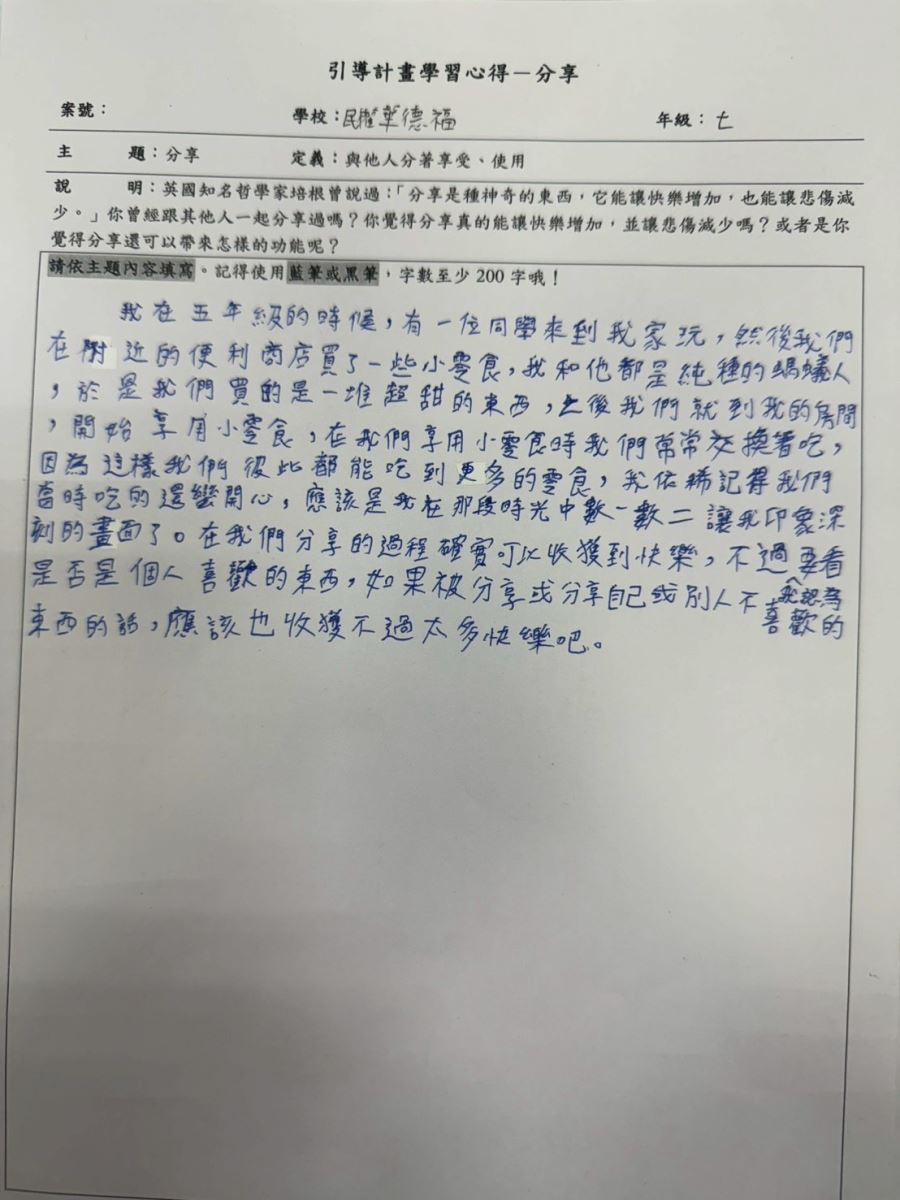 引導計畫學習心得－分享
案號： 學校：民權華德福 年級：七
主 題：分享 定義：與他人分著享受、使用
說 明：英國知名哲學家培根曾說過：「分享是種神奇的東西，它能讓快樂增加，也能讓悲傷減
少。」你曾經跟其他人一起分享過嗎？你覺得分享真的能讓快樂增加，並讓悲傷減少嗎？或者是你
覺得分享還可以帶來怎樣的功能呢？
請依主題內容填寫。記得使用藍筆或黑筆，字數至少 200 字哦！
我在五年級的時候，有一位同學來到我家玩，然後我們
在附近的便利商店買了一些小零食，我和他都是純種的螞蟻人
，於是我們買的是一堆超甜的東西，之後我們就到我的房間
，開始享用小零食，在我們享用小零食時我們常常交換著吃，
因為這樣我們彼此都能吃到更多的零食，我依稀記得我們
當時吃的還蠻開心，應該是我在那段時光中數一數二讓我印象深
刻的畫面了。在我們分享的過程確實可以收獲到快樂，不過要看
是否是個人喜歡的東西，如果被分享或分享自己或別人不喜歡的
我認為
東西的話，應該也收獲不過太多快樂吧。